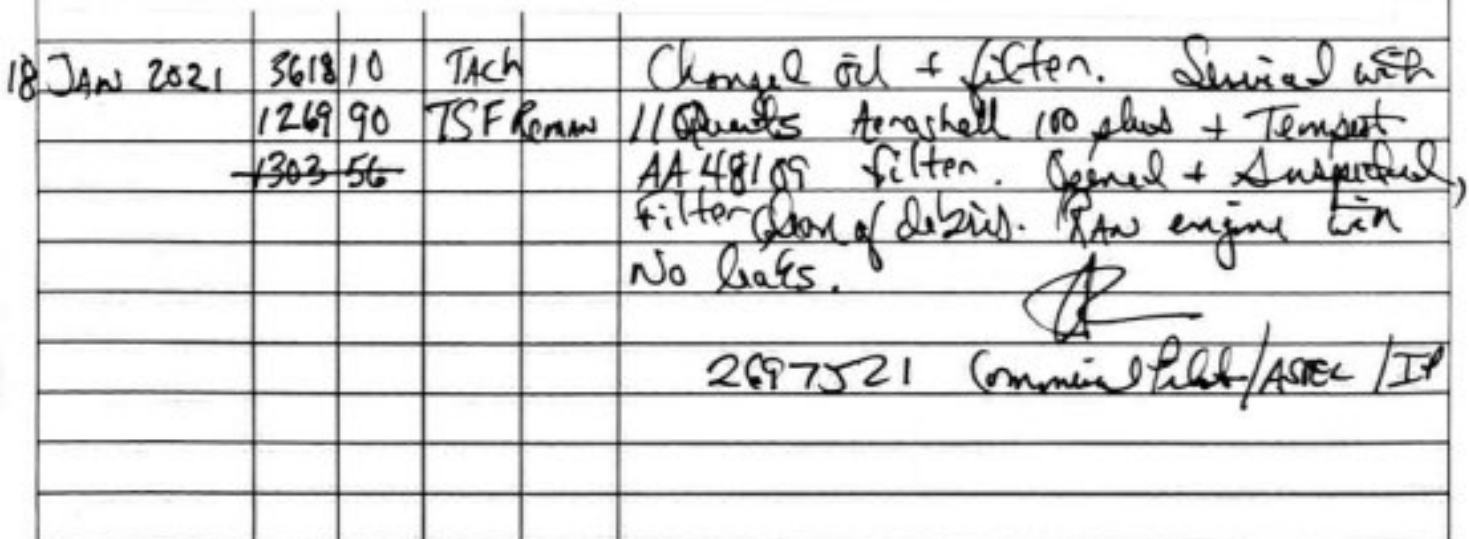 18 JAN 2021 3618 10 TACH Changed oil + filter. Serviced with
1269 90 TSF REMAN 11 Quarts Aeroshell 100 plus + Tempest
1303 56 AA48109 filter. Opened + Inspected,
Filter clean of debris. RAN engine with
No leaks.
2697521 Commercial Pilot/ASMEL/IP